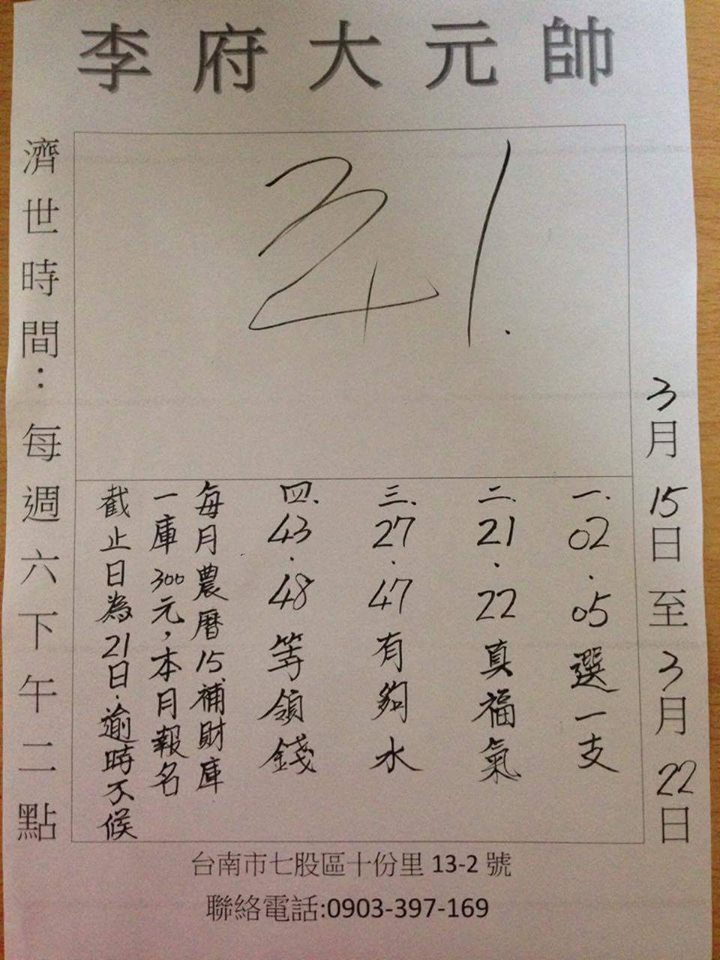 李府大元帥
3月15日至3月22日
一.02.05選一支
二.21.22真福氣
三.27.47有夠水
四.43.48等領錢
每月農曆15補財庫
一庫300元，本月報名
截止日為21日.逾時不候
濟世時間：每週六下午二點
台南市七股區十份里13-2號
聯絡電話:0903-397-169